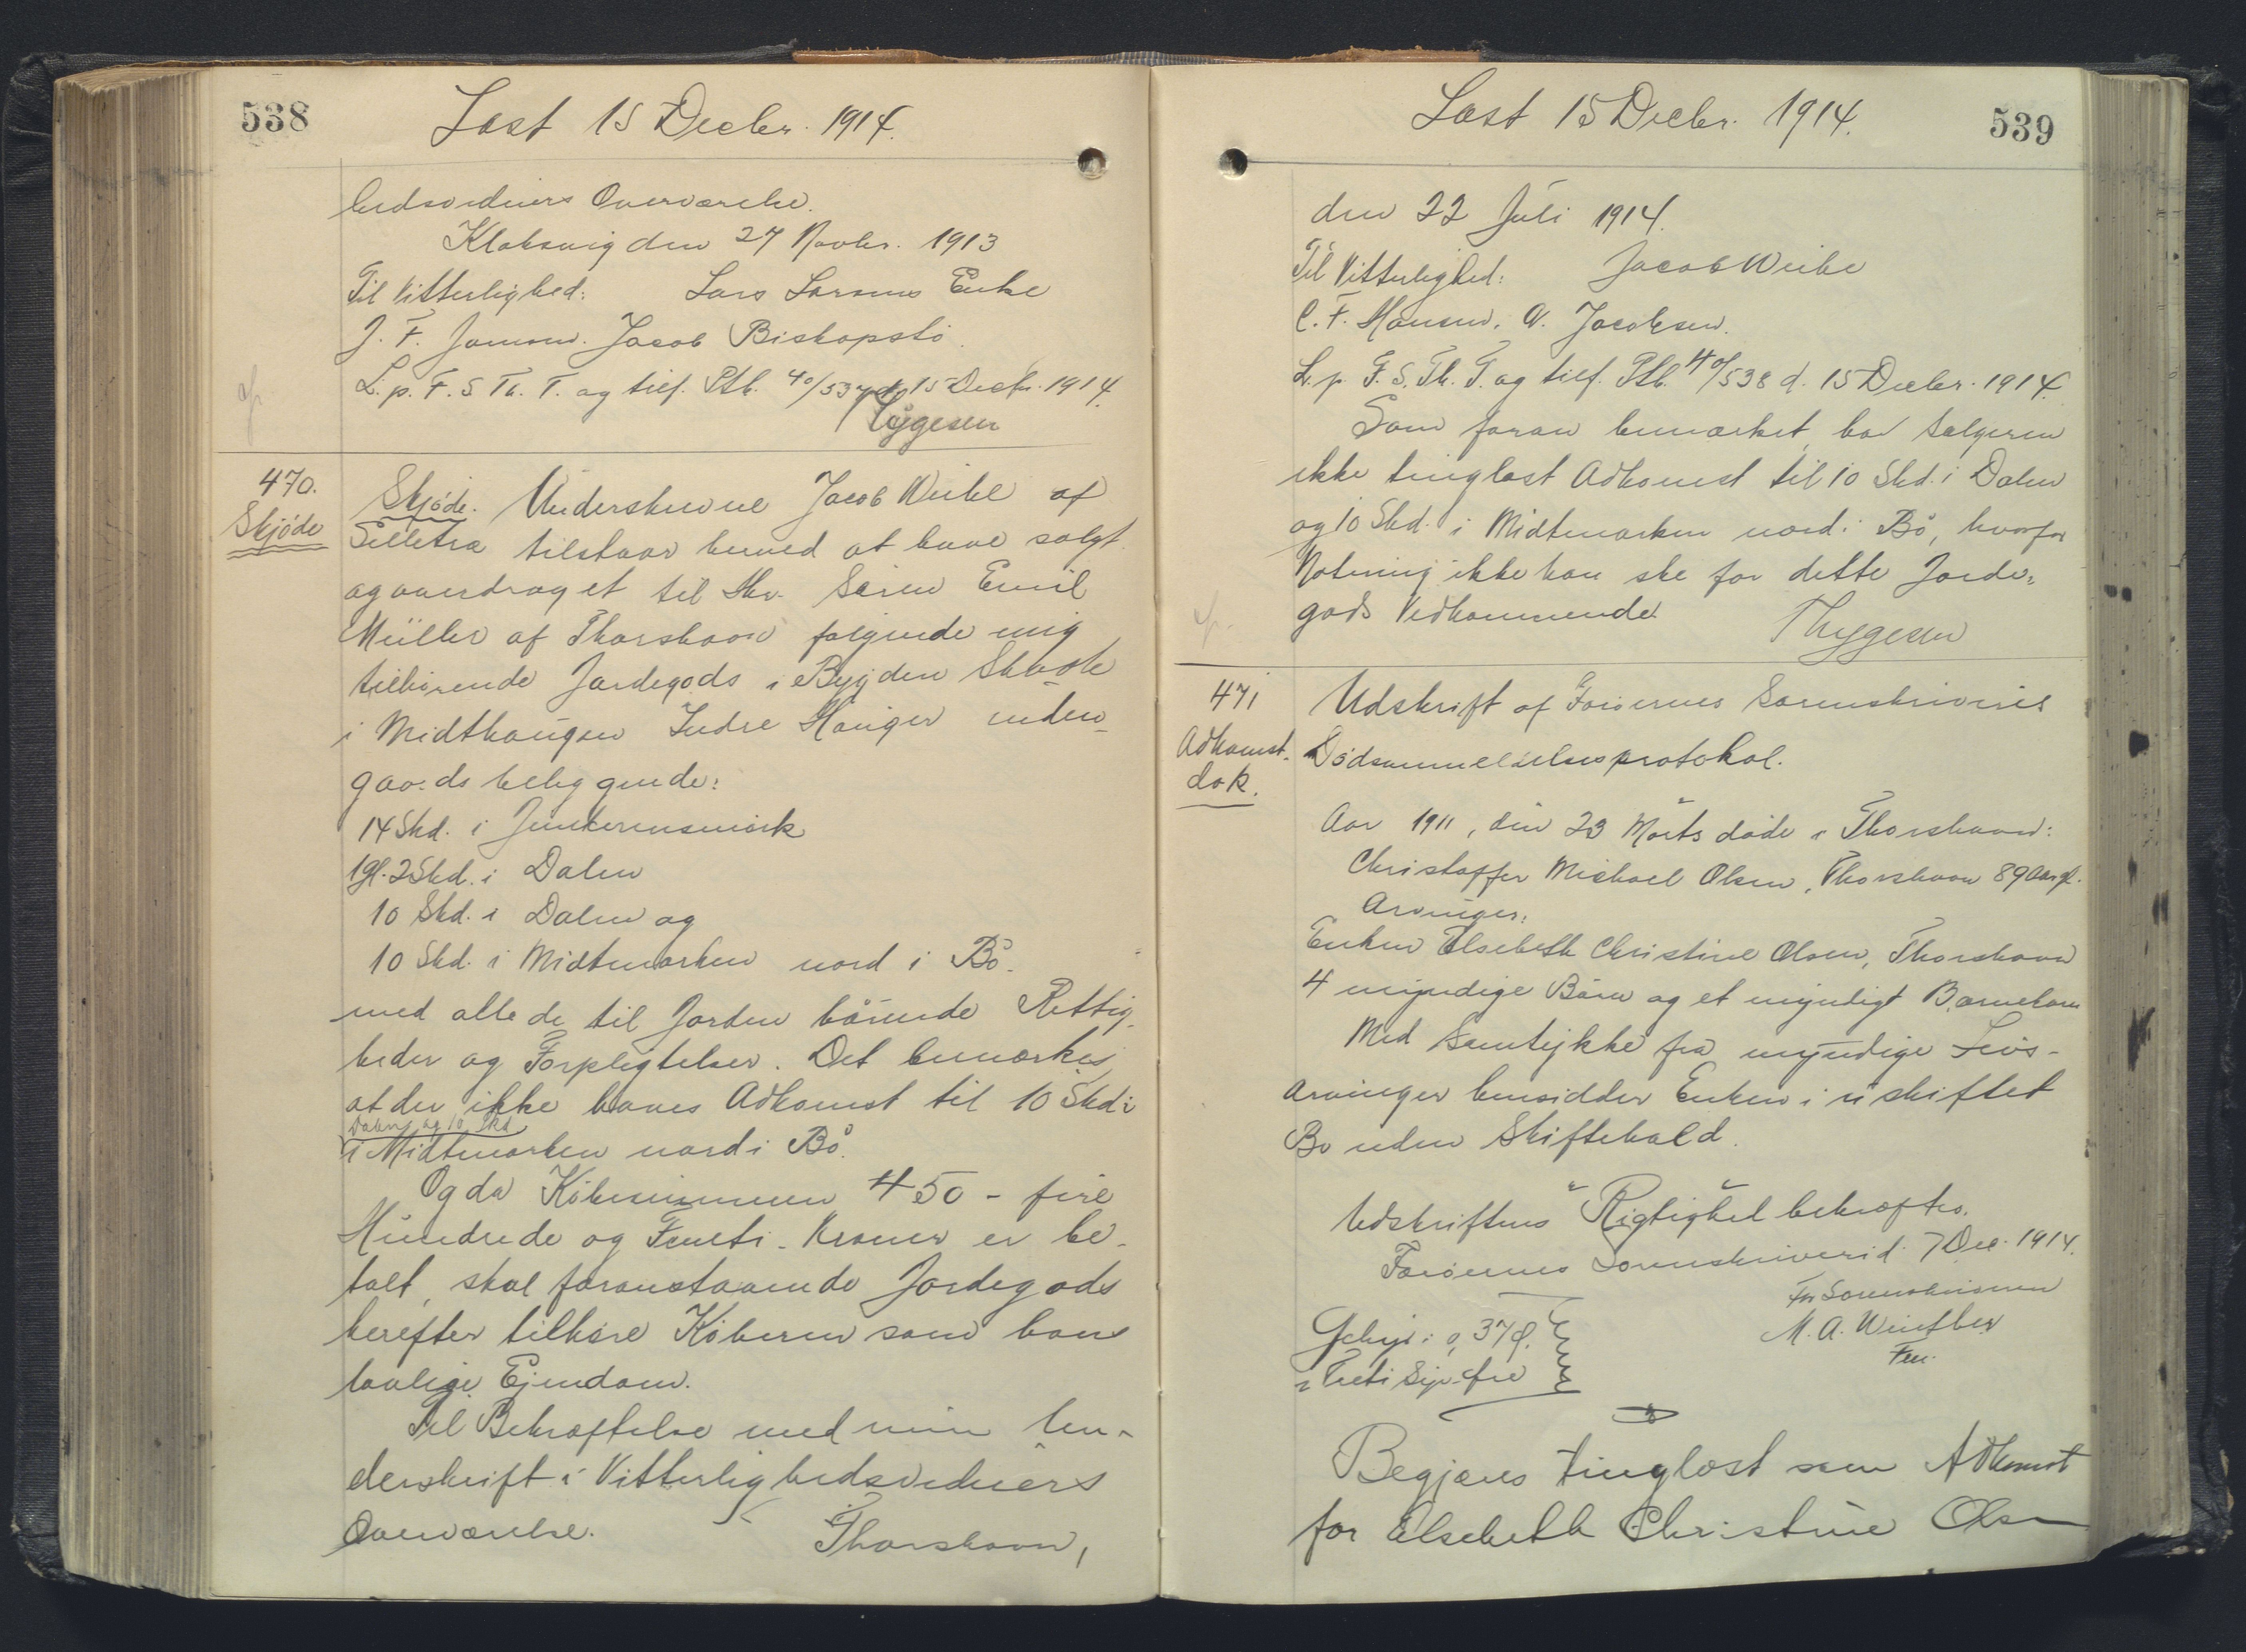 538
Læst 15 Decbr. 1914.
hedsvidners Overværelse.
Klaksvig den 27 Novbr. 1913
Til Vitterlighed: Lars Larsens Enke
J. F. Joensen. Jacob Biskopstö
L. p. F. S Th. T. og tilf. Ptk. 40/537 d 15 Decbr. 1914.
Thygesen
470.
Skjöde
Skjöde. Underskrevne Jacob Weihe af
Selletræ tilstaar herved at have solgt
og overdraget til Hr. Sören Emil
Müller af Thorshavn følgende mig
tilhørende Jordegods i Bygden Skaale
i Midthaugen Indre Hauger inden-
gaards beliggende:
14 Skd. i Junkerensmörk
1 gl. 2 Skd. i Dalen
10 Skd. i Dalen og
10 Skd. i Midtmarken nord i Bö.
med alle de til Jorden hörende Rettig-
heder og Forpligtelser. Det bemærkes
at der ikke haves Adkomst til 10 Skd i
Dalen og 10 Skd
i Midtmarken nord i Bö.
Og da Köbesummen 450 - fire
Hundrede og Femti - Kroner er be-
talt, skal foranstaaende Jordegods
herefter tilhöre Köberen som hans
lovlige Ejendom.
Til Bekræftelse med min Un-
derskrift i Vitterlighedsvidners
Overværelse. Thorshavn,
539
Læst 15 Decbr. 1914.
den 22 Juli 1914.
Til Vitterlighed: Jacob Weihe
C. F. Hansen. A. Jacobsen.
L. p. F. S. Th. T. og tilf. Ptk. 40/538 d. 15 Decbr. 1914.
Som foran bemærket har Sælgeren
ikke tinglæst Adkomst til 10 Skd. i Dalen
og 10 Skd. i Midtmarken nord i Bö, hvorfor
Notering ikke kan ske for dette Jorde-
gods Vedkommende.
Thygesen
471
Adkomst.
dok.
Udskrift af Færöernes Sorenskriveris
Dödsanmeldelsesprotokol.
Aar 1911, den 23 Marts døde i Thorshavn:
Christoffer Michael Olsen, Thorshavn 89 Aar gl.
Arvinger:
Enken Elsebeth Christine Olsen, Thorshavn
4 myndige Börn og et myndigt Barnebarn
Med Samtykke fra myndige Livs-
arvinger hensidder Enken i uskiftet
Bo uden Skiftehold.
Udskriftens Rigtighed bekræftes.
Færöernes Sorenskriveri d. 7 Dec. 1914.
For Sorenskriveren
M. A. Winther
Fm.
Gebyr: 0, 37 Ø.
Treti Syv Øre
Begjæres tinglæst som Adkomst
for Elsebeth Christine Olsen